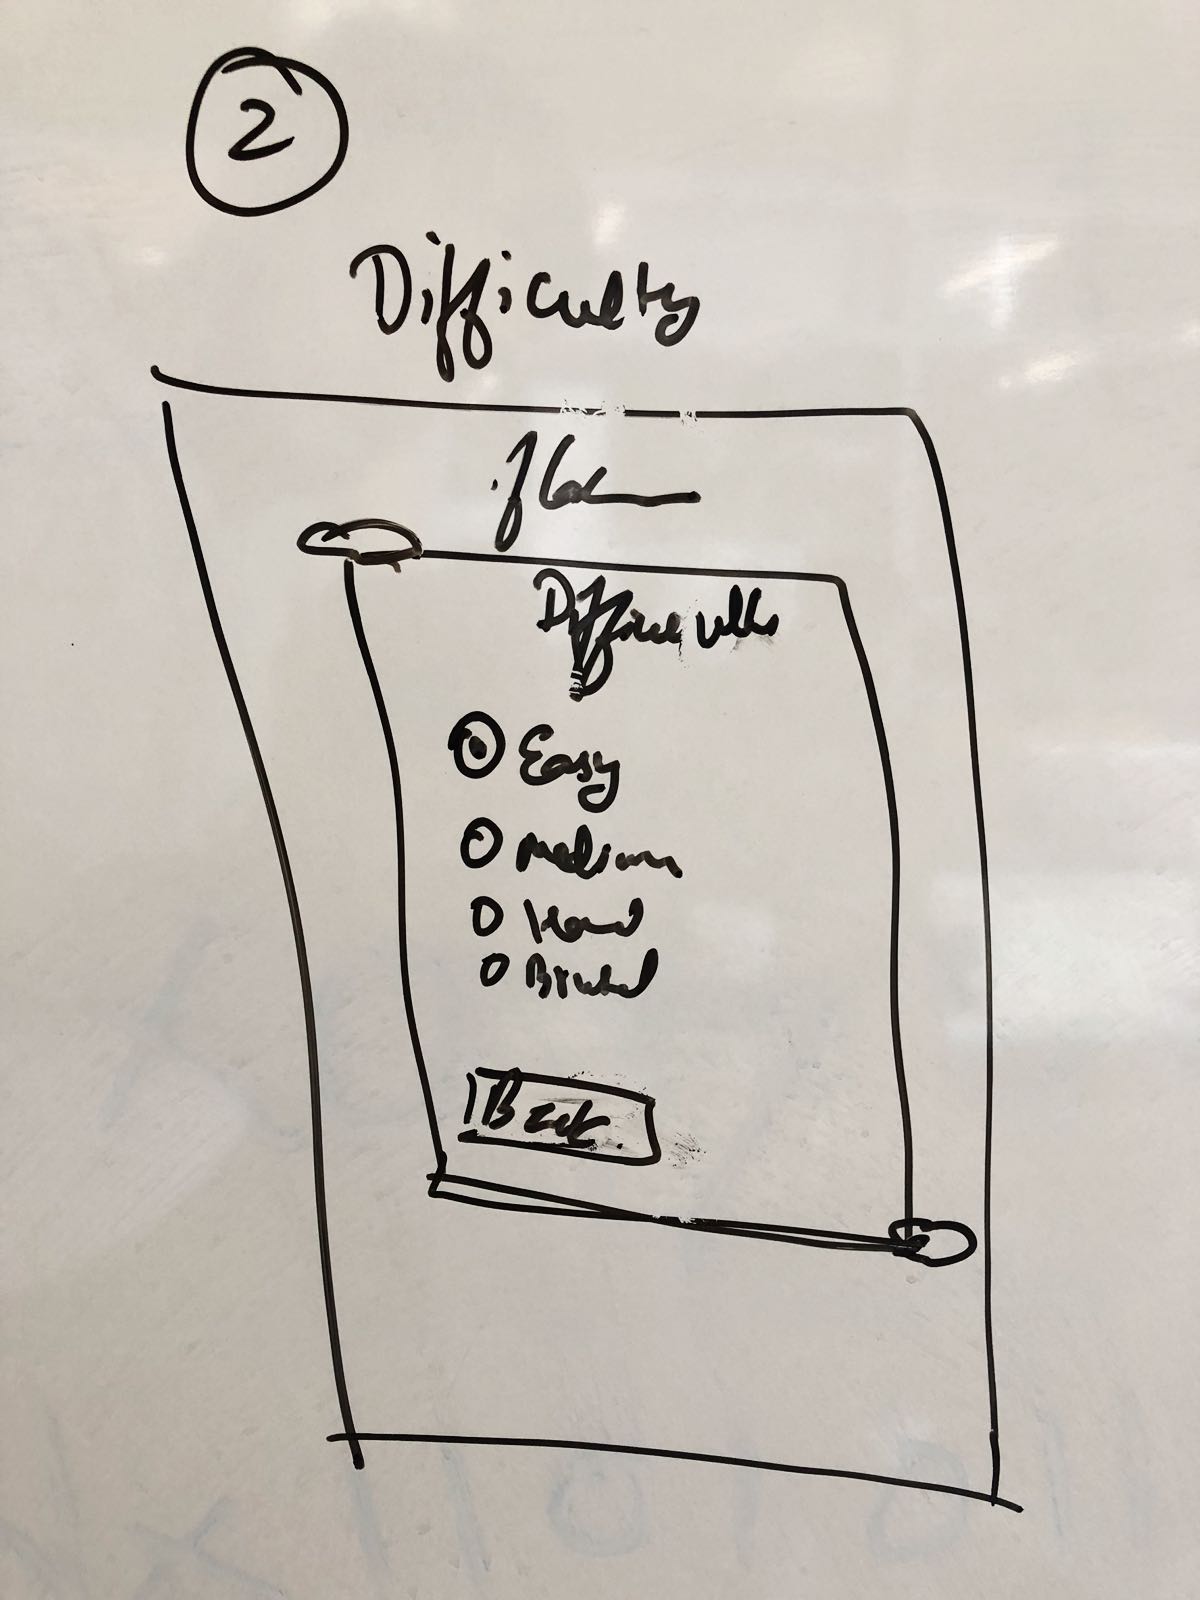 2
Difficulty
Difficulty
Easy
Medium
Hard
Brutal
Back